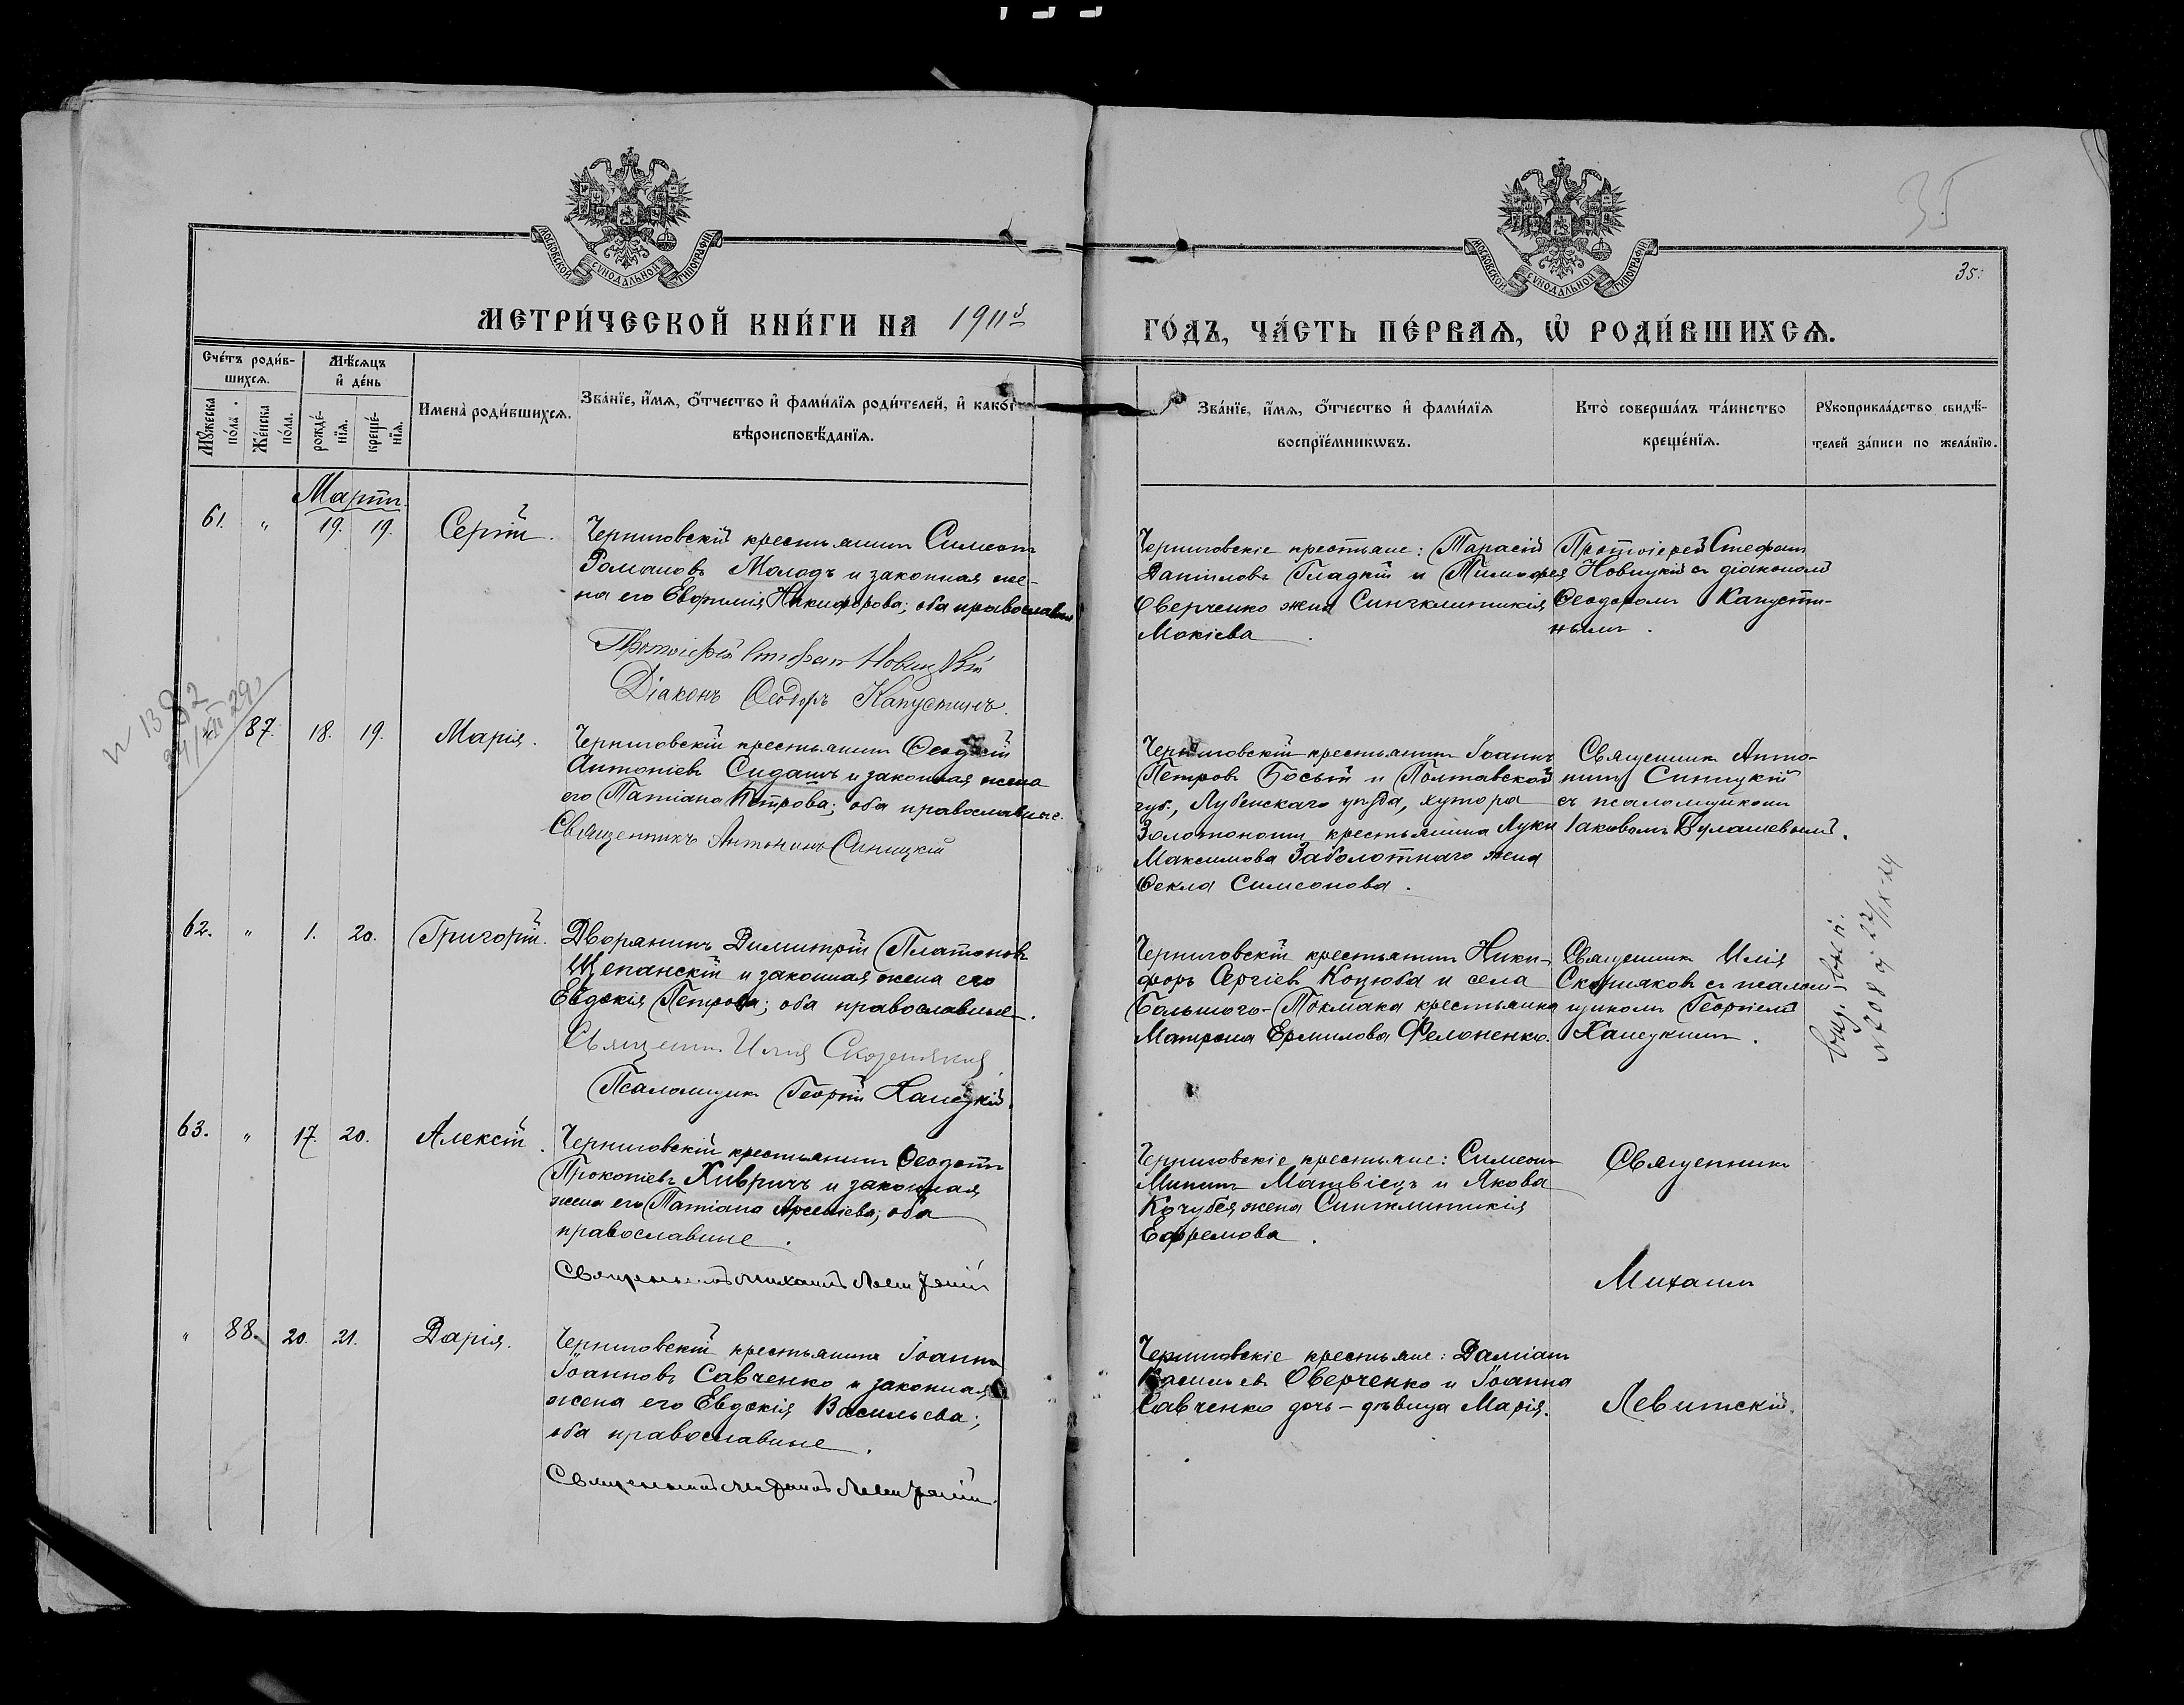 35
35.
МОСКОВСКОЙ СѴНОДАЛЬНОЙ ТИПОГРАФІИ
МОСКОВСКОЙ СѴНОДАЛЬНОЙ ТИПОГРАФІИ
МЕТРИ́ЧЕСКОЙ КНИ́ГИ НА 1911й
ГО́ДЪ, ЧА́СТЬ ПЕ́РВАѦ, Ѡ҆ РОДИ́ВШИХСѦ.
Сче́тъ роди́в-
шихсѧ.
Мꙋ́жеска
по́ла.
Же́нска
по́ла.
Мѣ́сѧцъ
и҆ де́нь
рожде́-
нїѧ.
креще́-
нїѧ.
Имена̀ роди́вшихсѧ.
Зва́нїе, и҆́мѧ, ѻ҆́тчество и҆ фами́лїѧ роди́телей, и҆ како́гѡ
вѣроисповѣ́данїѧ.
Зва́нїе, и҆́мѧ, ѻ҆́тчество и҆ фами́лїѧ
воспрїе́мникѡвъ.
Кто̀ соверша́лъ та́инство
креще́нїѧ.
Рꙋкоприкла́дство свидѣ́-
телей за́писи по жела́нїю.
Мартъ.
61. " 19. 19. Сергій.
Черниговскій крестьянинъ Симеонъ
Романовъ Молодъ и законная же-
на его Евфимія Никифорова; оба православные
Протоіерей Стефанъ Новицкій
Діаконъ Ѳеодоръ Капустинъ.
Черниговскіе крестьяне: Тарасій
Даніиловъ Гладкій и Тимоѳея
Оверченко жена Синклитикія
Мокіева.
Протоіерей Стефанъ
Новицкій съ діакономъ
Ѳеодоромъ Капусти-
нымъ.
N 1382
24/XII 29
" 87. 18. 19. Марія.
Черниговскій крестьянинъ Ѳеодосій
Антоніевъ Сидашъ и законная жена
его Татіана Петрова; оба православные.
Священникъ Антонинъ Синицкій
Черниговскій крестьянинъ Іоаннъ
Петровъ Босый и Полтавской
губ., Лубенскаго уѣзда, хутора
Золотоноши крестьянина Луки
Максимова Заболотнаго жена
Ѳекла Симеонова.
Священникъ Анто-
нинъ Синицкій
съ псаломщикомъ
Іаковомъ Булашевымъ.
62. " 1. 20. Григорій.
Дворянинъ Димитрій Платоновъ
Щепанскій и законная жена его
Евдокія Петрова; оба православные.
Священ. Илія Скорняковъ
Псаломщикъ Георгій Ханецкій.
Черниговскій крестьянинъ Ники-
форъ Сергіевъ Коцюба и села
Большого-Токмака крестьянка
Матрона Ермилова Фелоненко.
Священникъ Илія
Скорняковъ съ псалом-
щикомъ Георгіемъ
Ханецкимъ.
N 708 27/IX-24
63. " 17. 20. Алексій.
Черниговскій крестьянинъ Ѳеодотъ
Прокопіевъ Хивричъ и законная
жена его Татіана Арсеніева; оба
православные.
Священникъ Михаилъ Левитскій
Черниговскіе крестьяне: Симеонъ
Матвіецъ и Якова
Кочубея жена Синклитикія
Ефремова.
Священникъ
Михаилъ
" 88. 20. 21. Дарія.
Черниговскій крестьянинъ Іоаннъ
Іоанновъ Савченко и законная
жена его Евдокія Васильева;
оба православные.
Священникъ Михаилъ Левитскій.
Черниговскіе крестьяне: Даміанъ
Васильевъ Оверченко и Іоанна
Савченко дочь-дѣвица Марія.
Левитскій.